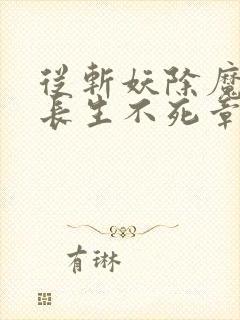 從斬妖除魔
長生不死章
有琳